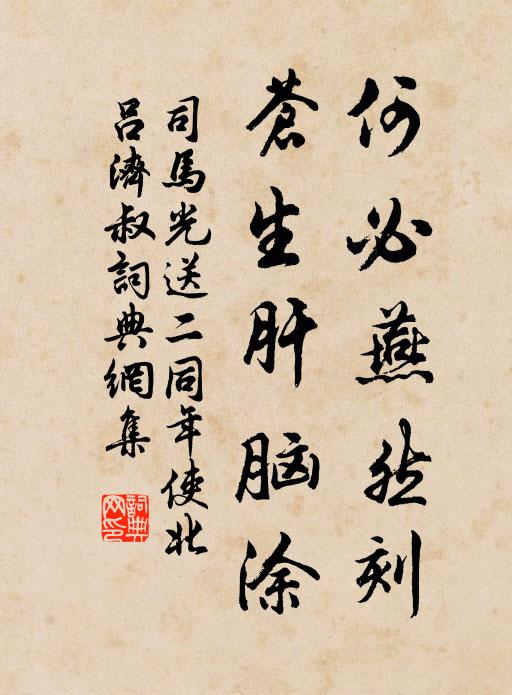 何必燕然刻
蒼生肝脑涂
司馬光送二同年使北
呂濟叔詞典網集
詞典
网印